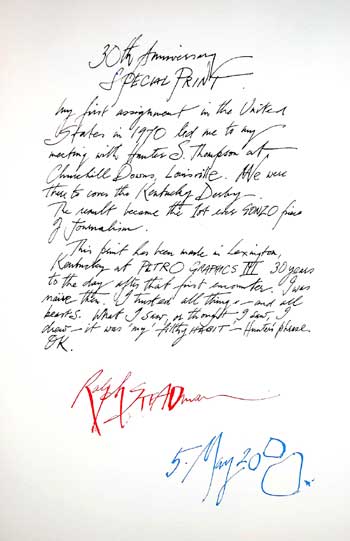 30th Anniversary
SPECIAL PRINT.
My first assignment in the United
States in 1970 led me to my
meeting with Hunter S. Thompson at
Churchill Downs, Louisville. We were
there to cover the Kentucky Derby—
The result became the 1st ever GONZO piece
of Journalism.
This print has been made in Lexington,
Kentucky at PETRO GRAPHICS III 30 years
to the day after that first encounter. I was
naive then. I trusted all things—and all
beasts. What I saw, or thought I saw, I
drew—it was 'my' filthy HABIT'—Hunter's phrase.
OK.
Ralph STEADman
5. May 2000.